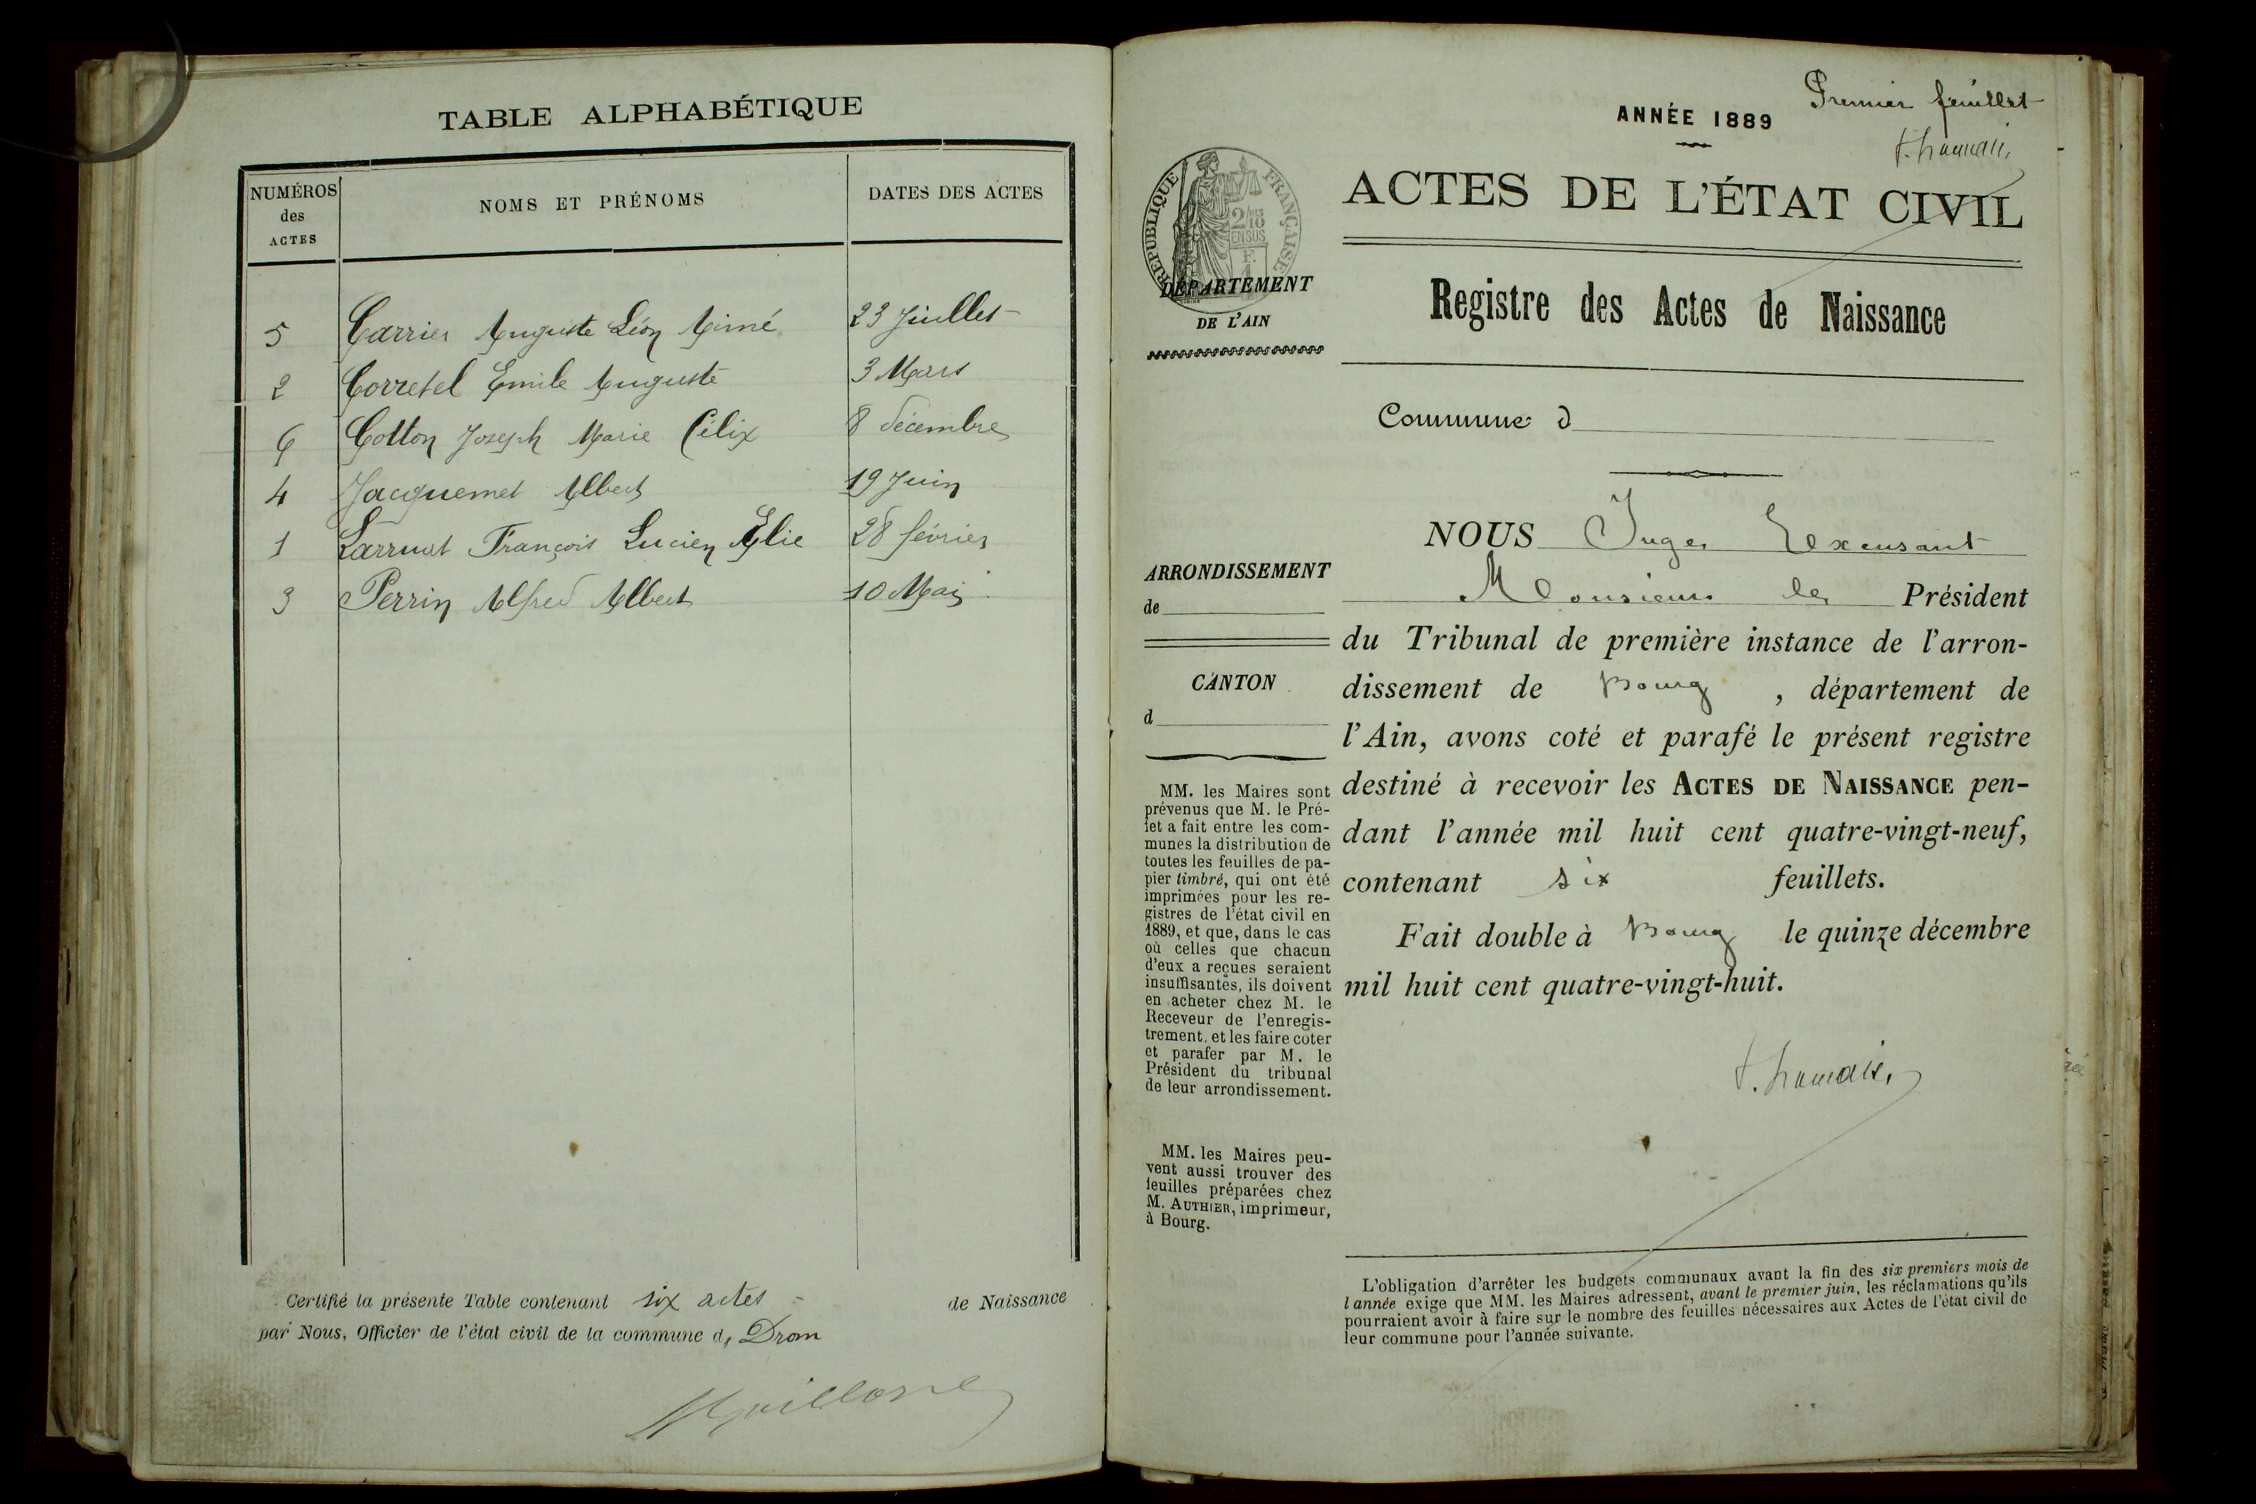 TABLE ALPHABÉTIQUE
NUMÉROS des ACTES
NOMS ET PRÉNOMS
DATES DES ACTES
5 Carrier Auguste Léon Aimé 23 Juillet
2 Corretel Emile Auguste 3 Mars
6 Cotton Joseph Marie Félix 8 décembre
4 Jacquemet Albert 19 Juin
1 Larruat François Lucien Elie 28 février
3 Perrin Alfred Albert 10 Mai
Certifié la présente Table contenant six actes de Naissance
par Nous, Officier de l'état civil de la commune de Drom
Premier feuillet
ANNÉE 1889
ACTES DE L'ÉTAT CIVIL
RÉPUBLIQUE FRANÇAISE
2/10 EN SUS
DÉPARTEMENT
DE L'AIN
Registre des Actes de Naissance
Commune d
ARRONDISSEMENT
de
CANTON
d
MM. les Maires sont
prévenus que M. le Pré-
fet a fait entre les com-
munes la distribution de
toutes les feuilles de pa-
pier timbré, qui ont été
imprimées pour les re-
gistres de l'état civil en
1889, et que, dans le cas
où celles que chacun
d'eux a reçues seraient
insuffisantes, ils doivent
en acheter chez M. le
Receveur de l'enregis-
trement, et les faire coter
et parafer par M. le
Président du tribunal
de leur arrondissement.
MM. les Maires peu-
vent aussi trouver des
feuilles préparées chez
M. AUTHIER, imprimeur,
à Bourg.
NOUS Juge Excusant
Monsieur le Président
du Tribunal de première instance de l'arron-
dissement de Bourg, département de
l'Ain, avons coté et parafé le présent registre
destiné à recevoir les ACTES DE NAISSANCE pen-
dant l'année mil huit cent quatre-vingt-neuf,
contenant six feuillets.
Fait double à Bourg le quinze décembre
mil huit cent quatre-vingt-huit.
L'obligation d'arrêter les budgets communaux avant la fin des six premiers mois de
l'année exige que MM. les Maires adressent, avant le premier juin, les réclamations qu'ils
pourraient avoir à faire sur le nombre des feuilles nécessaires aux Actes de l'état civil de
leur commune pour l'année suivante.